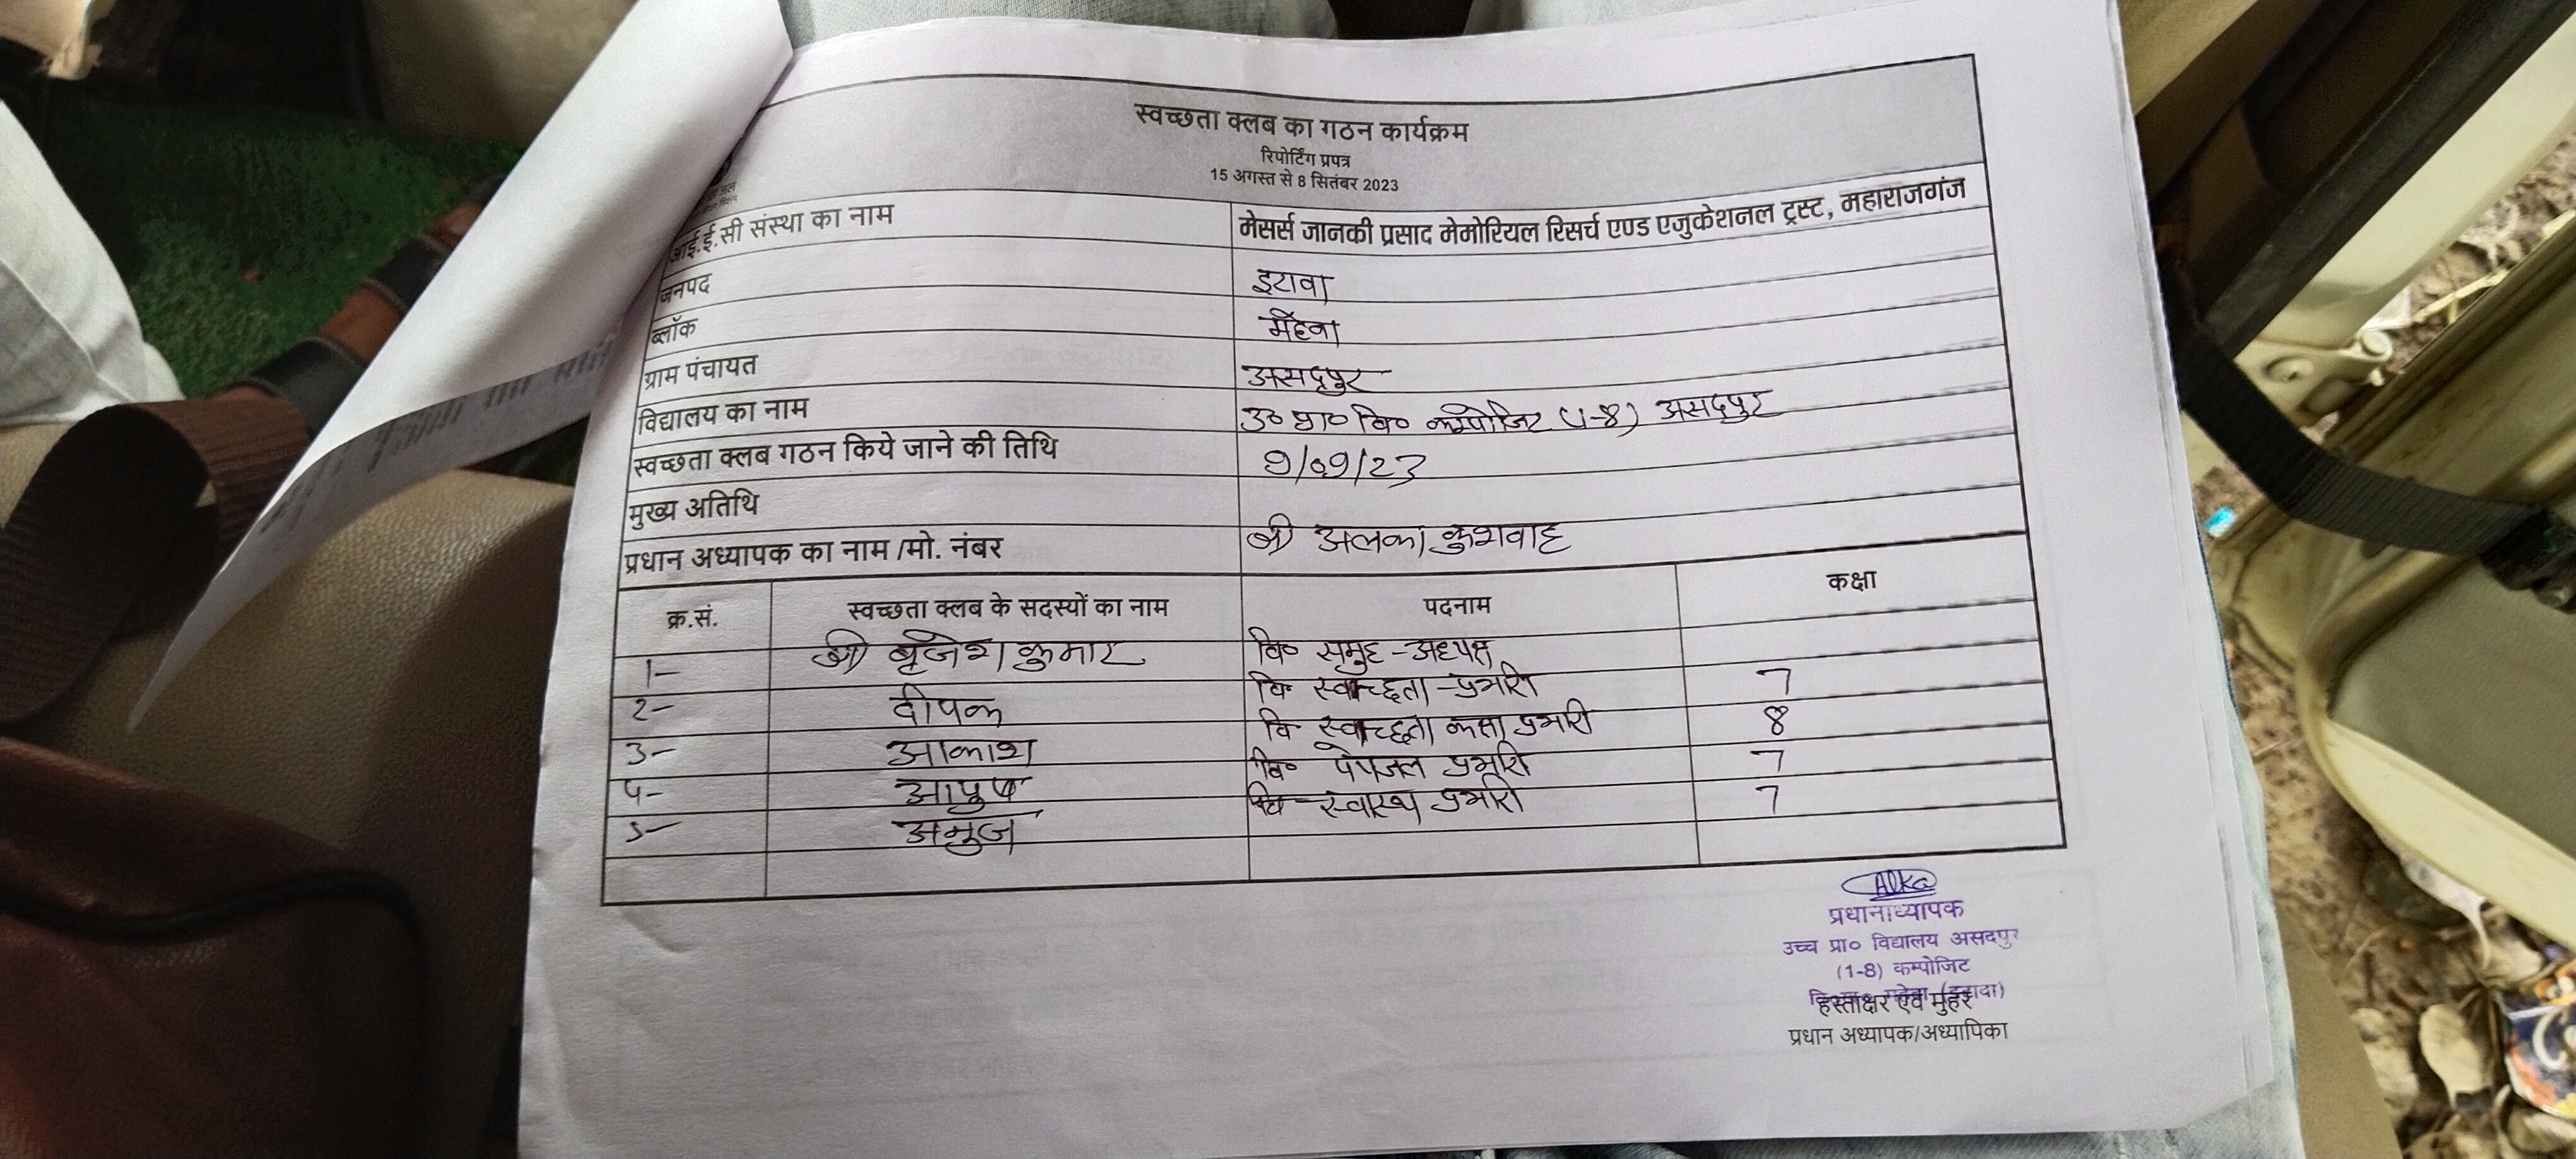 स्वच्छता क्लब का गठन कार्यक्रम
रिपोर्टिंग प्रपत्र
15 अगस्त से 8 सितंबर 2023
आई.ई.सी संस्था का नाम मेसर्स जानकी प्रसाद मेमोरियल रिसर्च एण्ड एजुकेशनल ट्रस्ट, महाराजगंज
जनपद इटावा
ब्लॉक महेवा
ग्राम पंचायत असदपुर
विद्यालय का नाम उ० प्रा० वि० कम्पोजिट (1-8) असदपुर
स्वच्छता क्लब गठन किये जाने की तिथि 9/09/23
मुख्य अतिथि
प्रधान अध्यापक का नाम /मो. नंबर श्री अलका कुशवाह
क्र.सं. स्वच्छता क्लब के सदस्यों का नाम पदनाम कक्षा
1- श्री बृजेश कुमार वि० समुह - अध्यक्ष
2- दीपक वि० स्वच्छता - प्रभारी 7
3- आकाश वि० स्वच्छता कक्षा प्रभारी 8
4- आयुष वि० पेयजल प्रभारी 7
5- अनुज स्वास्थ्य प्रभारी 7
Alka
प्रधानाध्यापक
उच्च प्रा० विद्यालय असदपुर
(1-8) कम्पोजिट
महेवा (इटावा)
हस्ताक्षर एवं मुहर
प्रधान अध्यापक/अध्यापिका